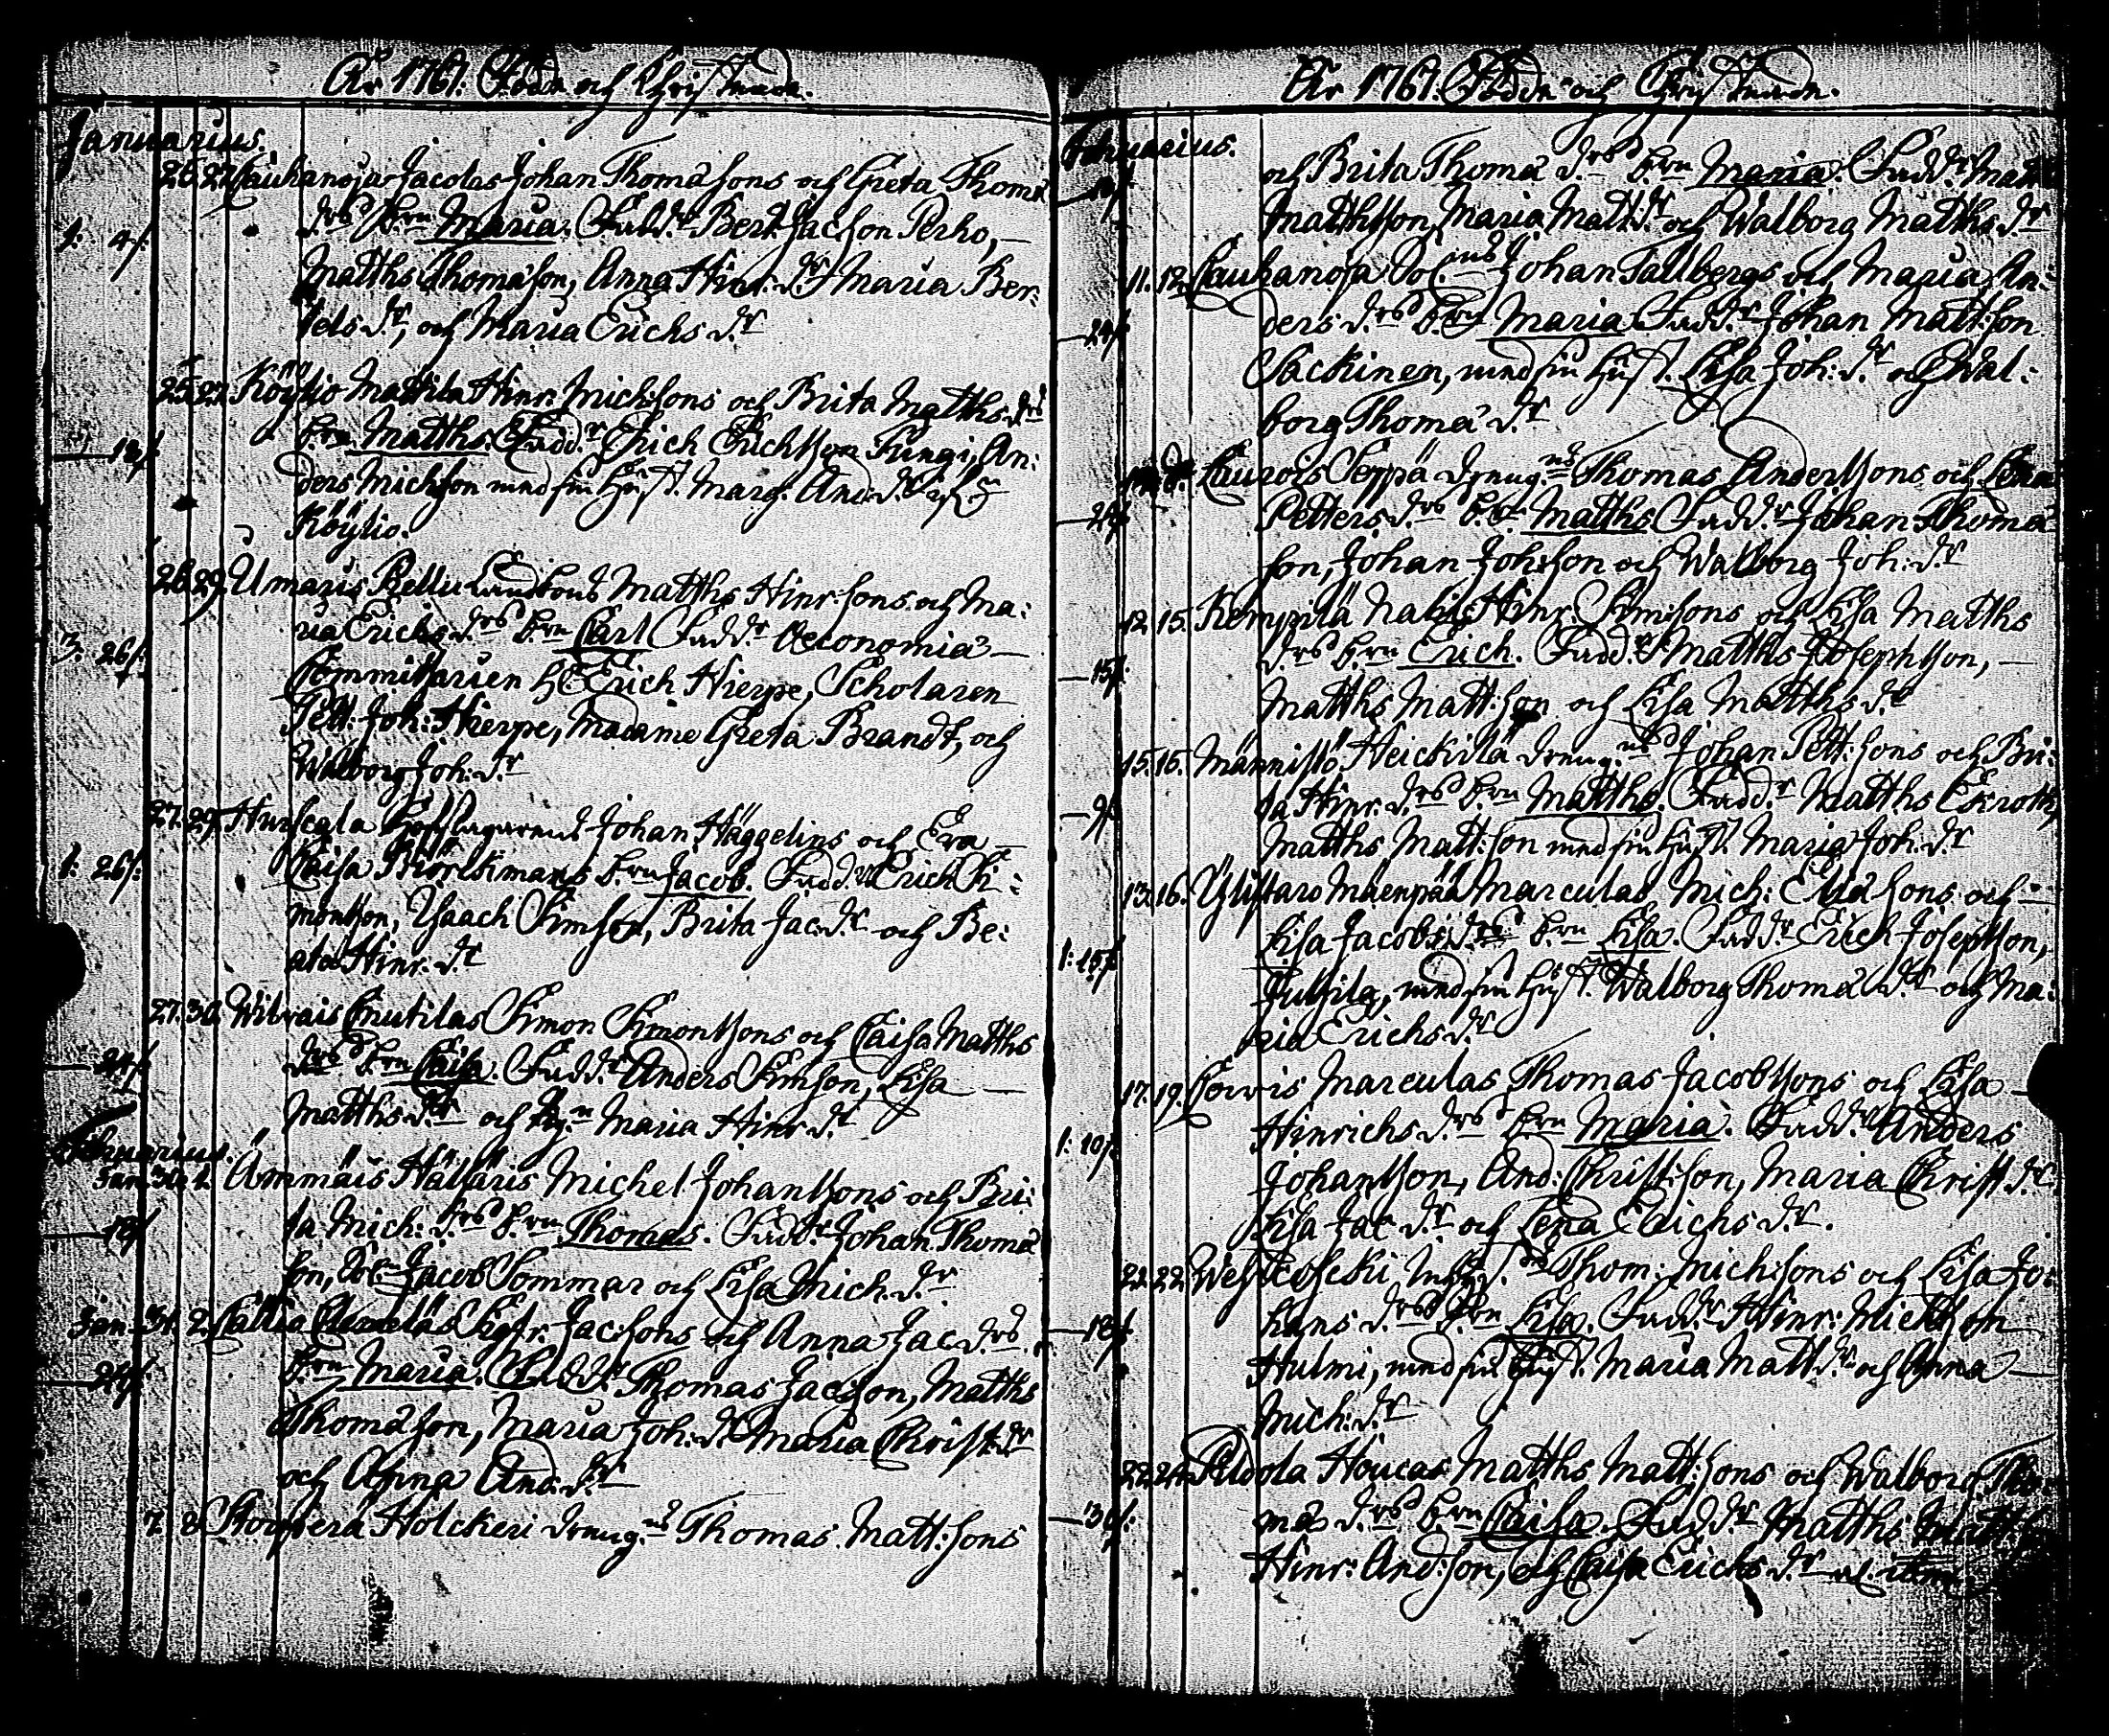 År 1761. Födde och Christnade.
Januarius.
26. 27. Cauhanoja Jacolas Johan Thomæ sons och Greta Thomæ
d.rs b.rn Maria. Fadd.r Bert. Jacson Perho,
1: 4/:
Matths Thomæson, Anna Hinr. d.r Maria Ber:
tels d.r, och Maria Erichs d.r
25. 27. Köyliö Mattila Hinr: Mich:sons och Brita Matths d.rs
b.rn Matths. Fadd.r Erich Erichsson, An:
ders Michson med sin Hust. Marg. And. d.r
Köyliö.
26. 29. Umaris Pellu Landbonds Matths Hinr:sons och Ma:
ria Erichs d.rs b.rn Carl. Fadd.r Oeconomiæ
3: 26/:
Commissarien H. Erich Hierpe, Scholaren
Pett: Joh: Hierpe, Madame Greta Brandt, och
Walborg Joh: d.r
27. 29. Hurscala Johan Häggelins och Eva
1: 26/:
Caisa b.rn Jacob. Fadd.r Erich Si:
monsson, Isaach Simson, Brita Jac. d.r och Be:
ata Hinr. d.r
27. 30. Wibrais Cnutilas Simon Simonssons och Caisa Matths
d.rs b.rn Caisa. Fadd.r Anders Simson, Lisa
24/:
Matths d.r och Maria Hinr. d.r
Februarius.
Jan. 30. 1. Ämmäis Hällaris Michel Johanssons och Bri:
ta Mich: d.rs b.rn Thomas. Fadd.r Johan Thomæ
18/:
son, Jacob Sommar och Lisa Mich. d.r
Jan. 31. 2. Jac:sons och Anna Jac. d.rs
b.rn Maria. Fadd.r Thomas Jacson, Matths
24/:
Thomæson, Maria Joh: d.r Maria Christ. d.r
och Anna And. d.r
7. 8. Storperä Holckeri dreng.ns Thomas Matt:sons
År 1761. Födde och Christnade.
Februarius.
och Brita Thomæ d.rs b.rn Maria. Fadd.r Matt
Matthsson, Maria Matt. d.r och Walborg Matths d.r
11. 12. Cauhanoja Johan Tallbergs och Maria An:
ders d.rs b.rn Maria. Fadd.r Johan Matt:son
24/:
Säckinen, med sin Hust. Lisa Joh: d.r och Wal:
borg Thomæ d.r
Laurois Seppä dreng.ns Thomas Anderssons och Lena
Petters d.rs b.rn Matths. Fadd.r Johan Thomæ
son, Johan Joh:son och Walborg Joh: d.r
12. 15. Kempilä Hinr. Sim:sons och Lisa Matths
d.rs b.rn Erich. Fadd.r Matths Josephsson,
15/:
Matths Matt:son och Lisa Matths d.r
15. 15. Männistö Heickilä dreng.ns Johan Pett:sons och Bri:
ta Hinr. d.rs b.rn Matths. Fadd.r Matths Ekroth,
9/:
Matths Matt:son med sin Hust. Maria Joh. d.r
13. 16. Ylistaro Mäenpää Marculas Mich: Eliæ sons och
Lisa Jacobs d.rs b.rn Lisa. Fadd.r Erich Josepsson,
1: 15/:
med sin Hust. Walborg Thomæ d.r och Ma:
ria Erichs d.r
17. 19. Corvis Marculas Thomas Jacobssons och Lisa
Hinrichs d.rs b.rn Maria. Fadd.r Anders
1: 10/:
Johansson, And: Christ:son, Maria Christ. d.r
Lisa Jac. d.r och Lena Erichs d.r.
22. 22. Thom: Mich:sons och Lisa Jo:
hans d.rs b.rn Lisa. Fadd.r Hinr: Michsson
18/:
Hulmi, med sin Hust. Maria Matt. d.r och Anna
Mich: d.r
22. 24. Matths Matt:sons och Walborg Tho:
mæ d.rs b.rn Caisa. Fadd.r Matths Matt
30/:
Hinr: And:son, och Caisa Erichs d.r